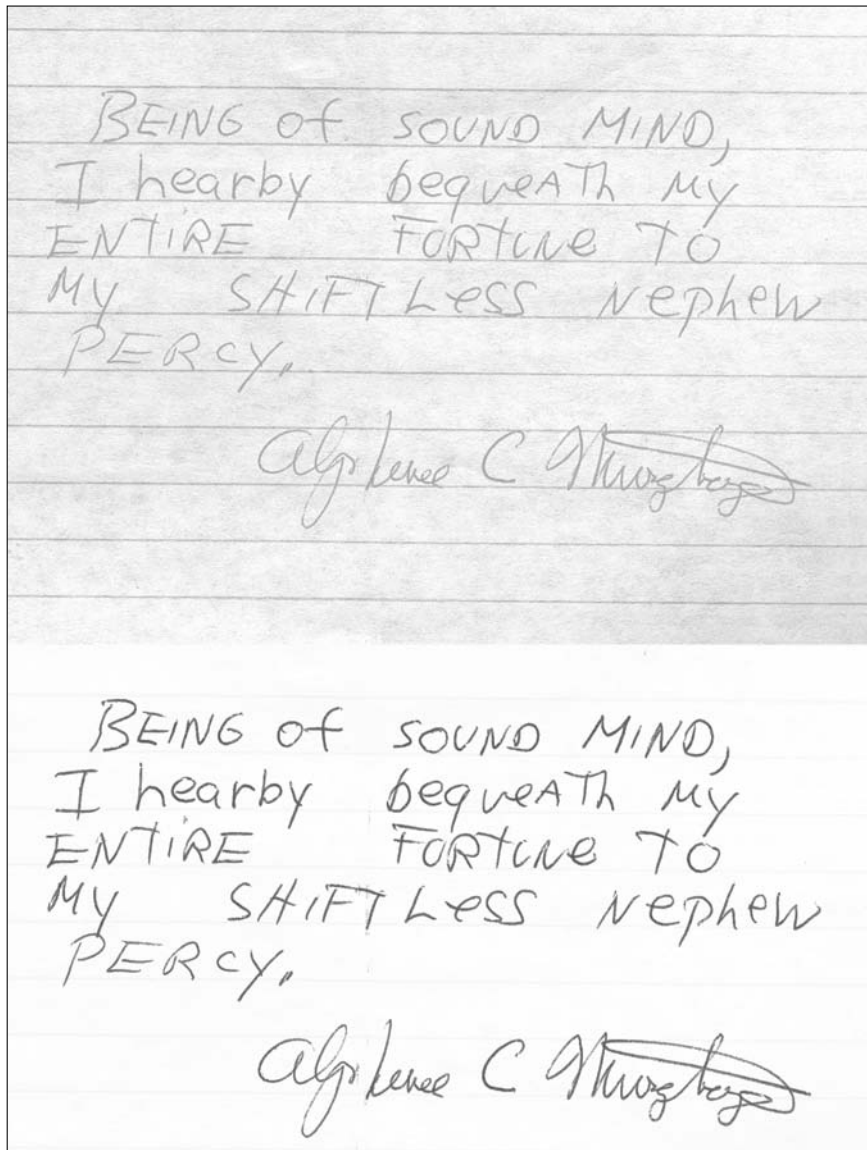 BEING of SOUND MIND,
I hearby bequeATh My
ENTIRE FORTUNe TO
My SHIFTLess Nephew
PERCY.
C
BEING of SOUND MIND,
I hearby bequeATh My
ENTIRE FORTUNe TO
My SHIFTLess Nephew
PERCY.
C